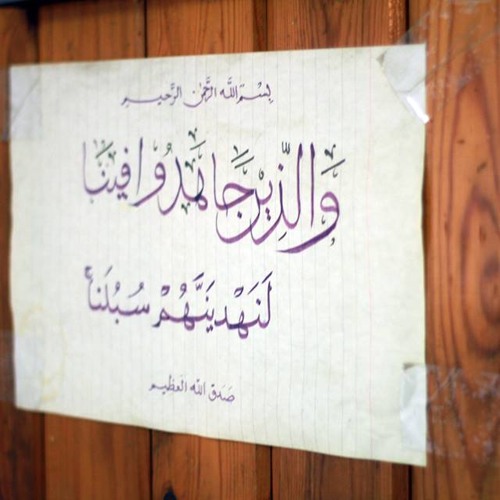 بِسْمِ اللَّهِ الرَّحْمٰنِ الرَّحِيمِ
وَالَّذِيْنَ جَاهَدُوْا فِيْنَا
لَنَهْدِيَنَّهُمْ سُبُلَنَا
صَدَقَ اللّٰهُ العَظِيم